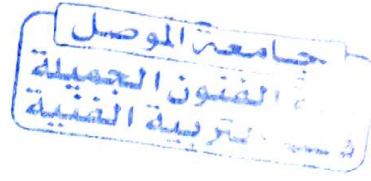 جامعة الموصل
الفنون الجميلة
التربية الفنية